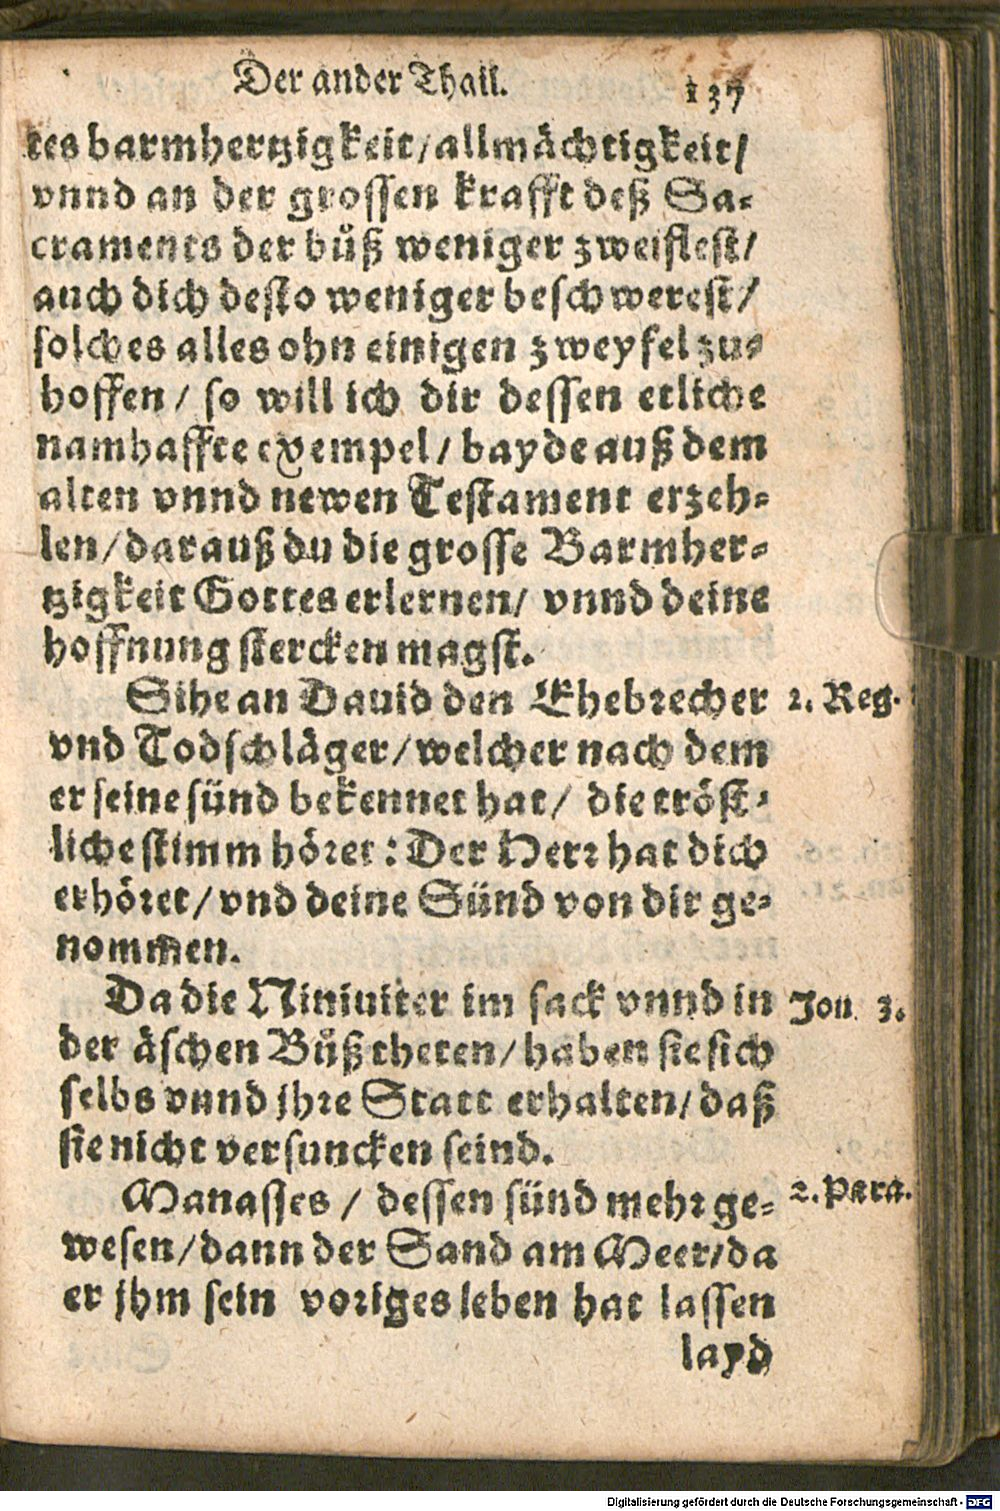 Der ander Thail. 137
tes barmhertzigkeit/allmächtigkeit/
vnnd an der grossen krafft deß Sa-
craments der büß weniger zweiflest/
auch dich desto weniger beschwerest/
solches alles ohn einigen zweyfel zu-
hoffen/ so will ich dir dessen etliche
namhaffte exempel/ bayde auß dem
alten vnnd newen Testament erzeh-
len/darauß du die grosse Barmher-
tzigkeit Gottes erlernen/ vnnd deine
hoffnung stercken magst.
Sihe an Dauid den Ehebrecher 2. Reg.
vnd Todschläger/welcher nach dem
er seine sünd bekennet hat/ die tröst-
liche stimm höret: Der Herr hat dich
erhöret/vnd deine Sünd von dir ge-
nommen.
Da die Niniuiter im sack vnnd in Jon 3.
der äschen Büß theten/haben sie sich
selbs vnnd jhre Statt erhalten/daß
sie nicht versuncken seind.
Manasses / dessen sünd mehr ge- 2. Para.
wesen/dann der Sand am Meer/da
er jhm sein voriges leben hat lassen
layd
Digitalisierung gefördert durch die Deutsche Forschungsgemeinschaft - DFG